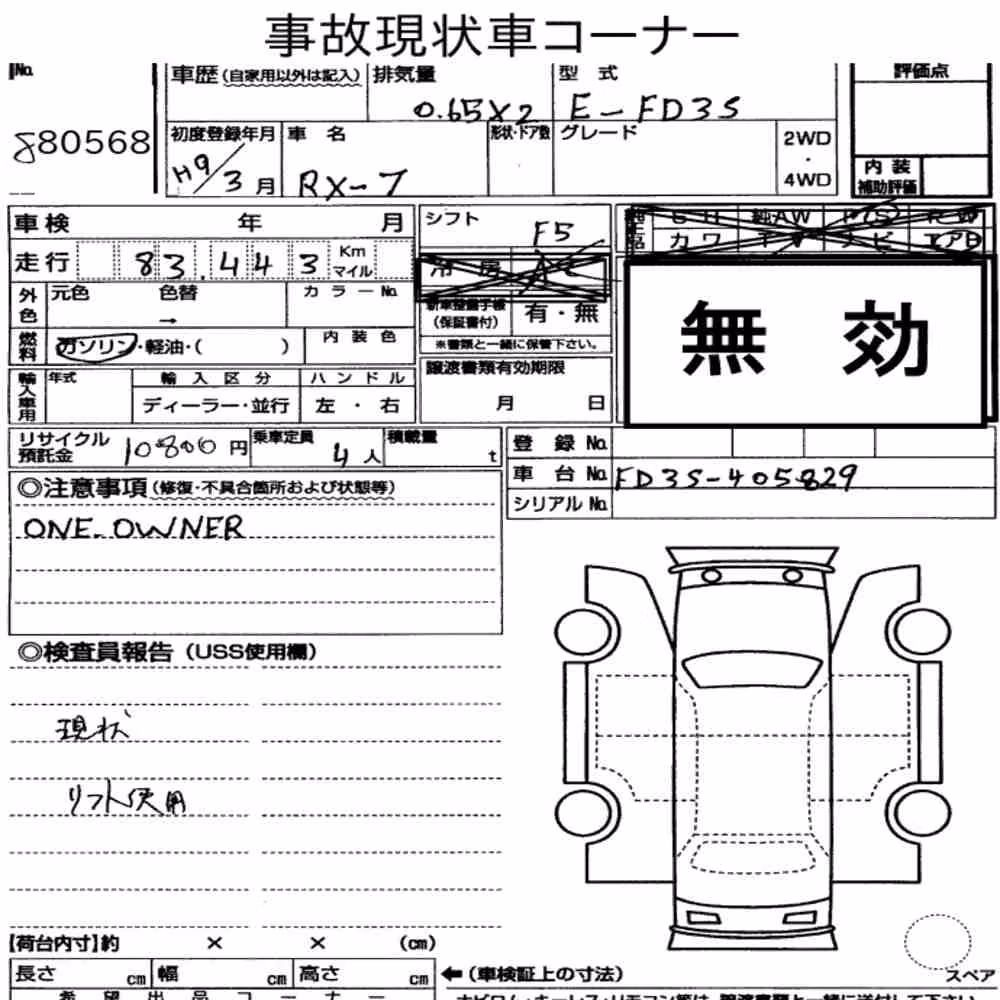 事故現状車コーナー
No.
車歴(自家用以外は記入)
排気量
0.65X2
型 式
E-FD3S
評価点
880568
初度登録年月
H9/3月
車 名
RX-7
形状・ドア数
グレード
2WD
・
4WD
内 装
補助評価
車 検 年 月
シフト
F5
走 行 83.443 Km
マイル
冷 房 AC
外色
元色 色替
→
カ ラ ー No.
新車整備手帳
(保証書付)
有・無
※書類と一緒に保管下さい。
無 効
燃料
ガソリン・軽油・( )
内 装 色
譲渡書類有効期限
月 日
輸入車用
年式
輸 入 区 分
ハ ン ド ル
ディーラー・並行
左 ・ 右
リサイクル
預託金
10800円
乗車定員
4人
積載量
t
登 録 No.
車 台 No. FD3S-405829
シリアル No.
◎注意事項(修復・不具合箇所および状態等)
ONE.OWNER
◎検査員報告(USS使用欄)
現状
リフト使用
【荷台内寸】約 × × (cm)
長さ cm 幅 cm 高さ cm
←(車検証上の寸法)
スペア
希 望 出 品 コ ー ナ ー